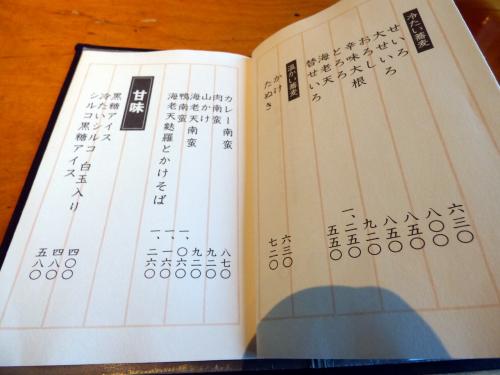 冷たい蕎麦
せいろ 六三〇
大せいろ 八〇〇
おろし 八五〇
辛味大根 八五〇
とろろ 九二〇
海老天 一、二五〇
替せいろ 五五〇
温かい蕎麦
かけ 六三〇
たぬき 七二〇
カレー南蛮 八七〇
肉南蛮 九二〇
山かけ 九二〇
海老天南蛮 一、〇六〇
鴨南蛮 一、一六〇
海老天麩羅とかけそば 一、二六〇
甘味
黒糖アイス 四〇〇
冷たいシルコ 白玉入り 四八〇
シルコ黒糖アイス 五八〇